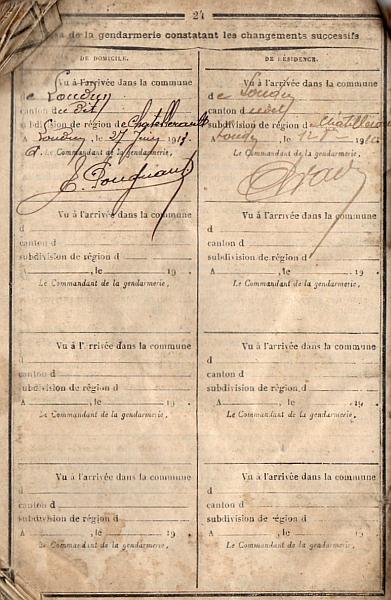 24
de la gendarmerie constatant les changements successifs
DE DOMICILE.
Vu à l'arrivée dans la commune
de Loudun
canton du dit
subdivision de région de Chatellerault
A Loudun, le 27 Juin 1913
Le Commandant de la gendarmerie,
Vu à l'arrivée dans la commune
d
canton d
subdivision de région d
A , le 19 .
Le Commandant de la gendarmerie,
Vu à l'arrivée dans la commune
d
canton d
subdivision de région d
A , le 19 .
Le Commandant de la gendarmerie,
Vu à l'arrivée dans la commune
d
canton d
subdivision de région d
A , le 19
Le Commandant de la gendarmerie,
DE RÉSIDENCE.
Vu à l'arrivée dans la commune
de Loudun
canton d
subdivision de région de Chatellerault
A , le 19
Le Commandant de la gendarmerie,
Vu à l'arrivée dans la commune
d
canton d
subdivision de région d
A , le 19 .
Le Commandant de la gendarmerie,
Vu à l'arrivée dans la commune
d
canton d
subdivision de région d
A , le 19 .
Le Commandant de la gendarmerie,
Vu à l'arrivée dans la commune
d
canton d
subdivision de région d
A , le 19 .
Le Commandant de la gendarmerie,